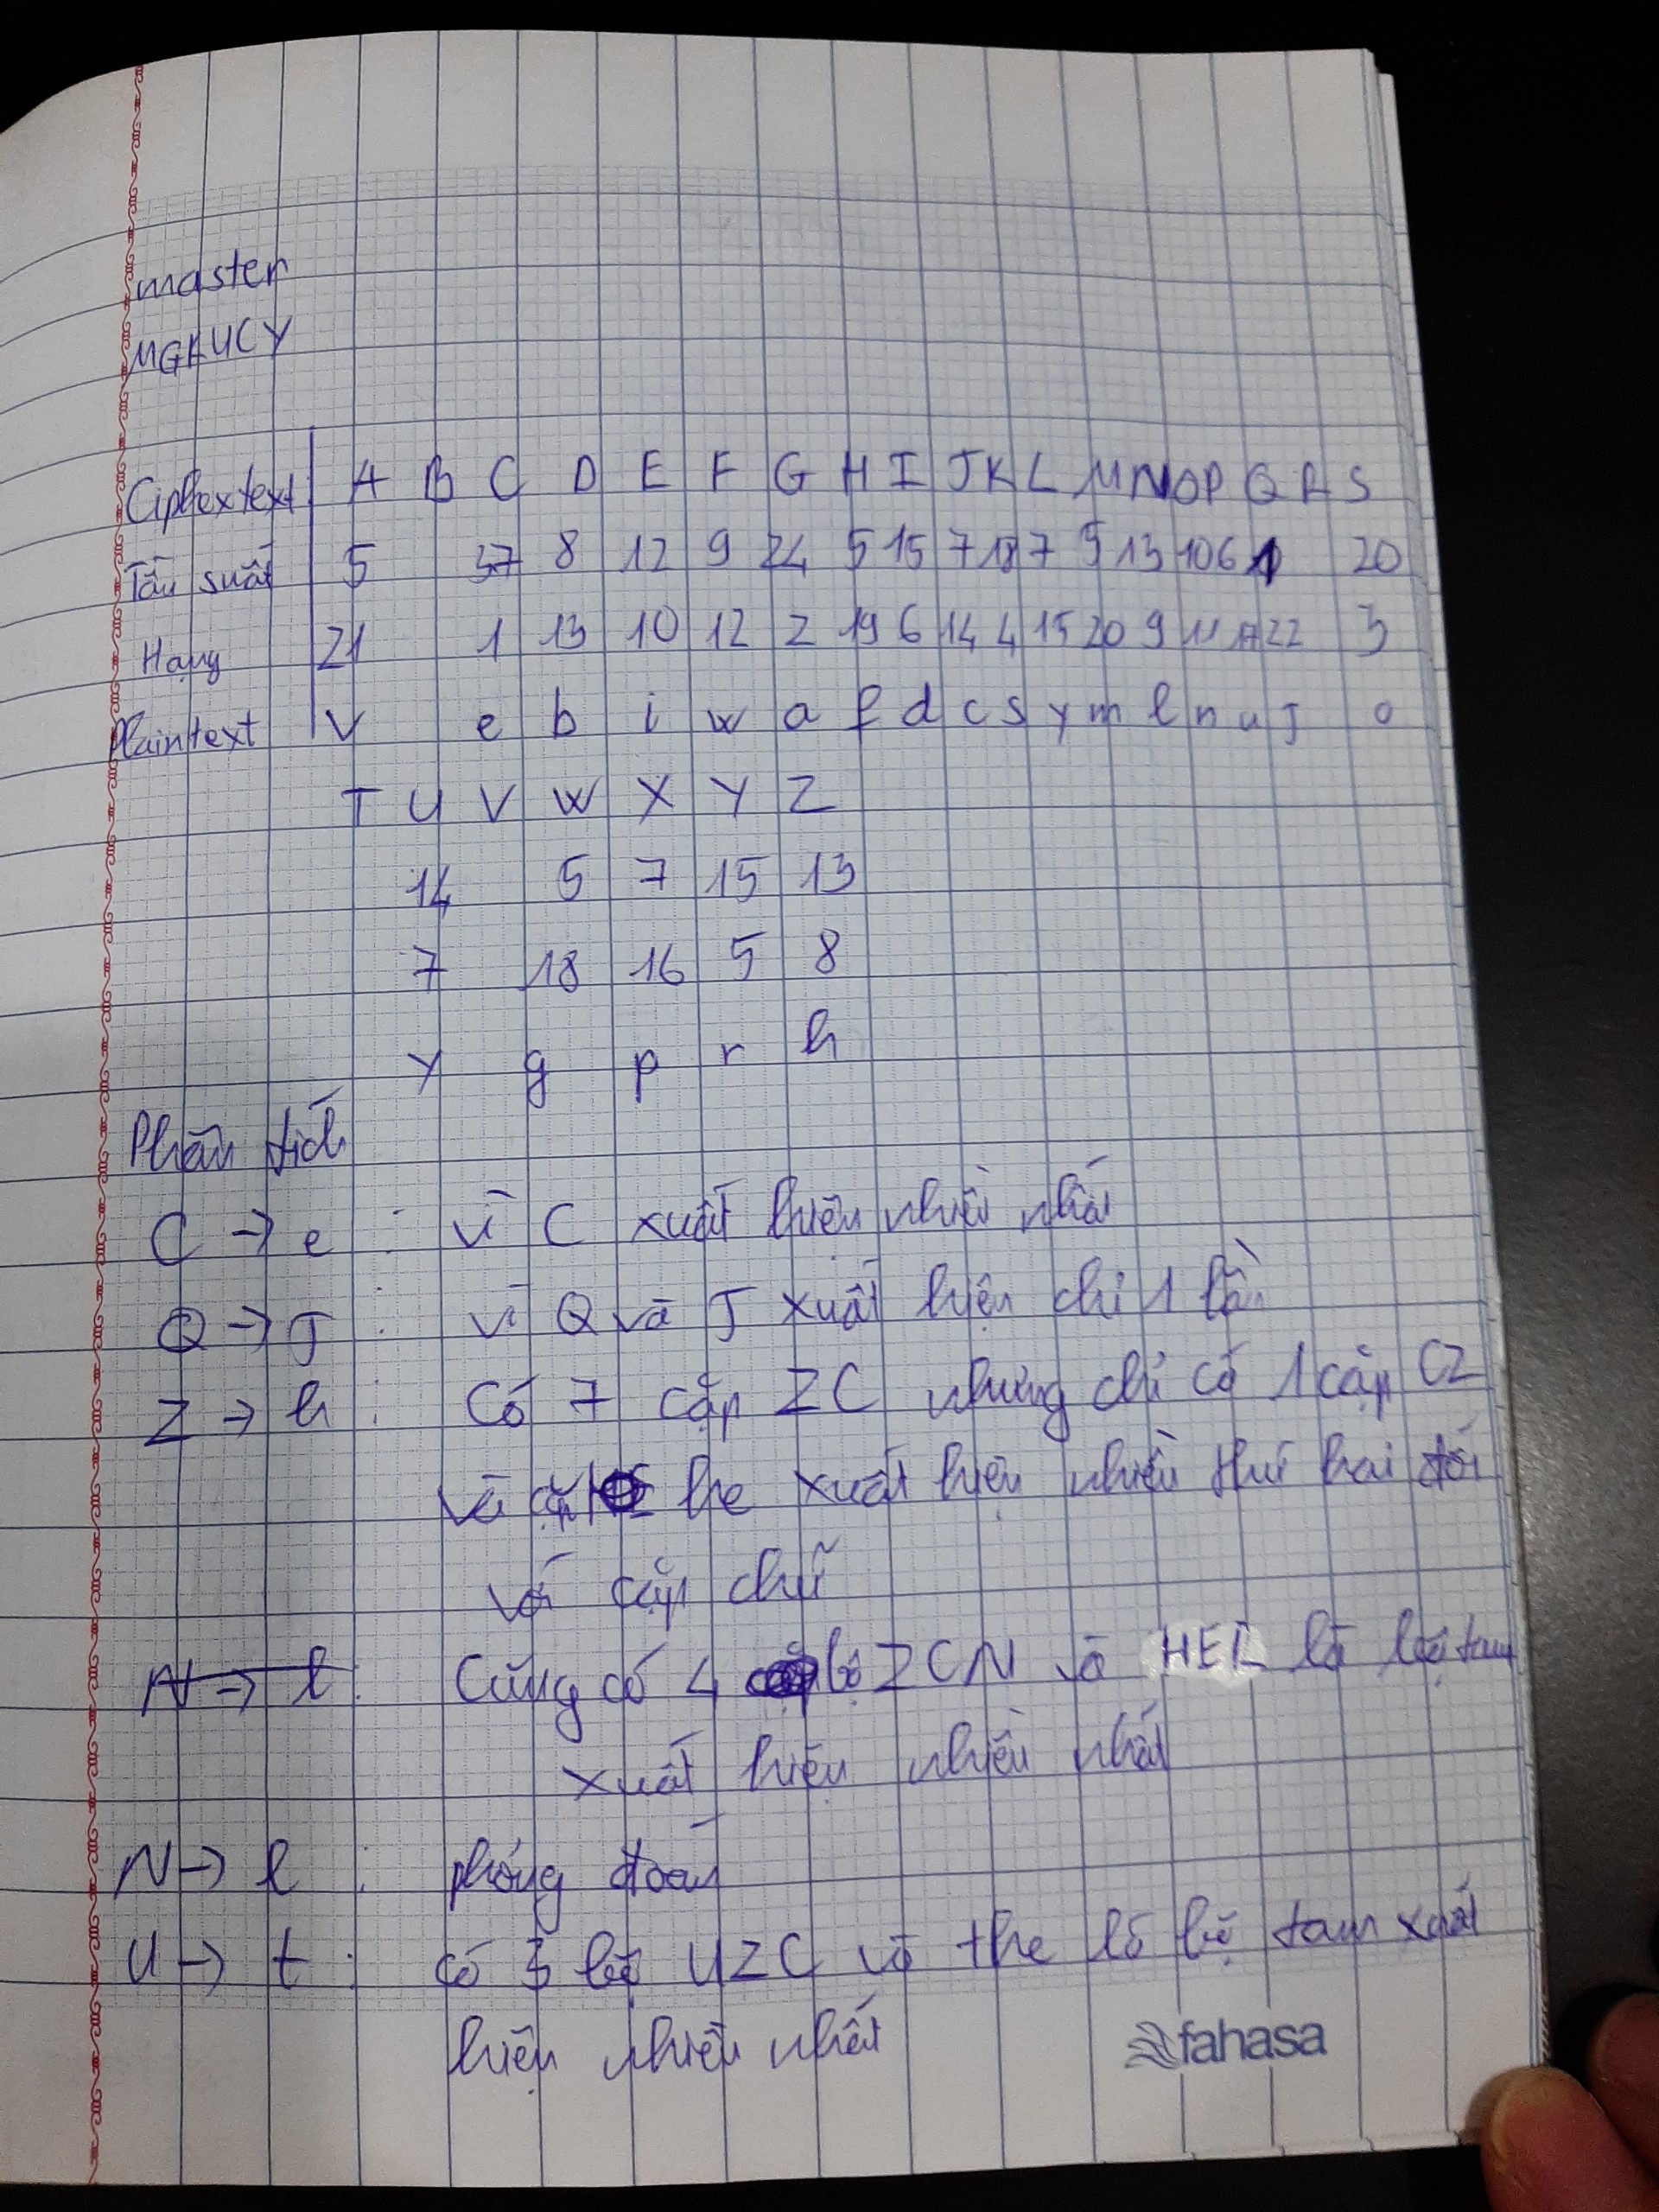 master
MGAUCY
Ciphertext A B C D E F G H I J K L M N O P Q R S
Tần suất 5 37 8 12 9 24 5 15 7 18 7 5 13 10 6 1 20
Hạng 21 1 13 10 12 2 19 6 14 4 15 20 9 11 17 22 3
Plaintext v e b i w a f d c s y m l n u J o
T U V W X Y Z
14 5 7 15 13
7 18 16 5 8
y g p r h
Phân tích
C → e : vì C xuất hiện nhiều nhất
Q → J : vì Q và J xuất hiện chỉ 1 lần
Z → h : Có 7 cặp ZC nhưng chỉ có 1 cặp CZ
và cặp he xuất hiện nhiều thứ hai đối
với cặp chữ
N → l : Cũng có 4 bộ ZCN và HEL là bộ tam
xuất hiện nhiều nhất
N → l : phỏng đoán
U → t : có 3 bộ UZC và the là bộ tam xuất
hiện nhiều nhất
fahasa